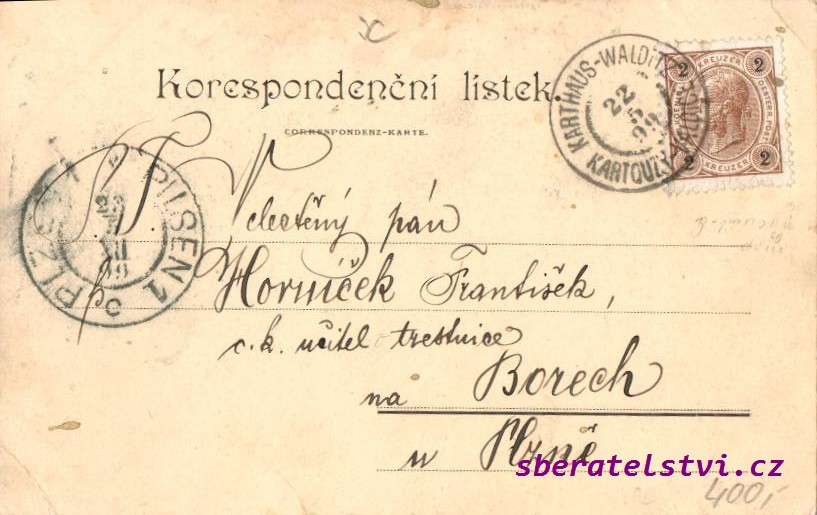 Korespondenční lístek.
CORRESPONDENZ-KARTE.
KARTHAUS-WALDITZ
22
5
KARTOUZY
2 KREUZER 2
2 KREUZER 2
PILSEN 1
PLZEŇ
Velectěný pán
Horníček František,
c. k. učitel trestnice
na Borech
u Plzně
sberatelstvi.cz
400,-